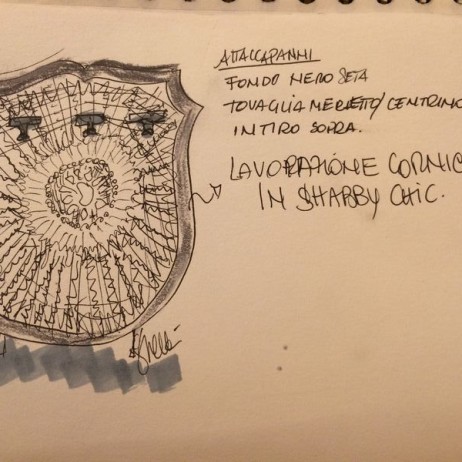 ATTACCAPANNI
FONDO NERO SETA
TOVAGLIA MERLETTO/CENTRINO
IN TIRO SOPRA.
LAVORAZIONE CORNIC
IN SHABBY CHIC.